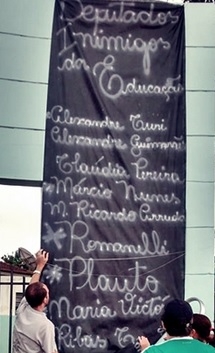 Deputados
Inimigos
da Educação
Alexandre Curi
Alexandre Guimarães
Claudia Pereira
Márcio Nunes
M. Ricardo Arruda
* Romanelli
* Plauto
Maria Victó
Ribas C